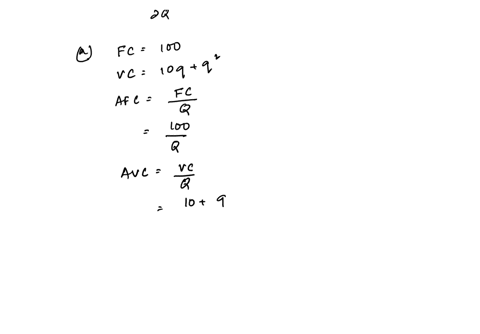 ∂Q
(a) FC = 100
VC = 10q + q²
AFC = FC/Q
= 100/Q
AVC = VC/Q
= 10 + q